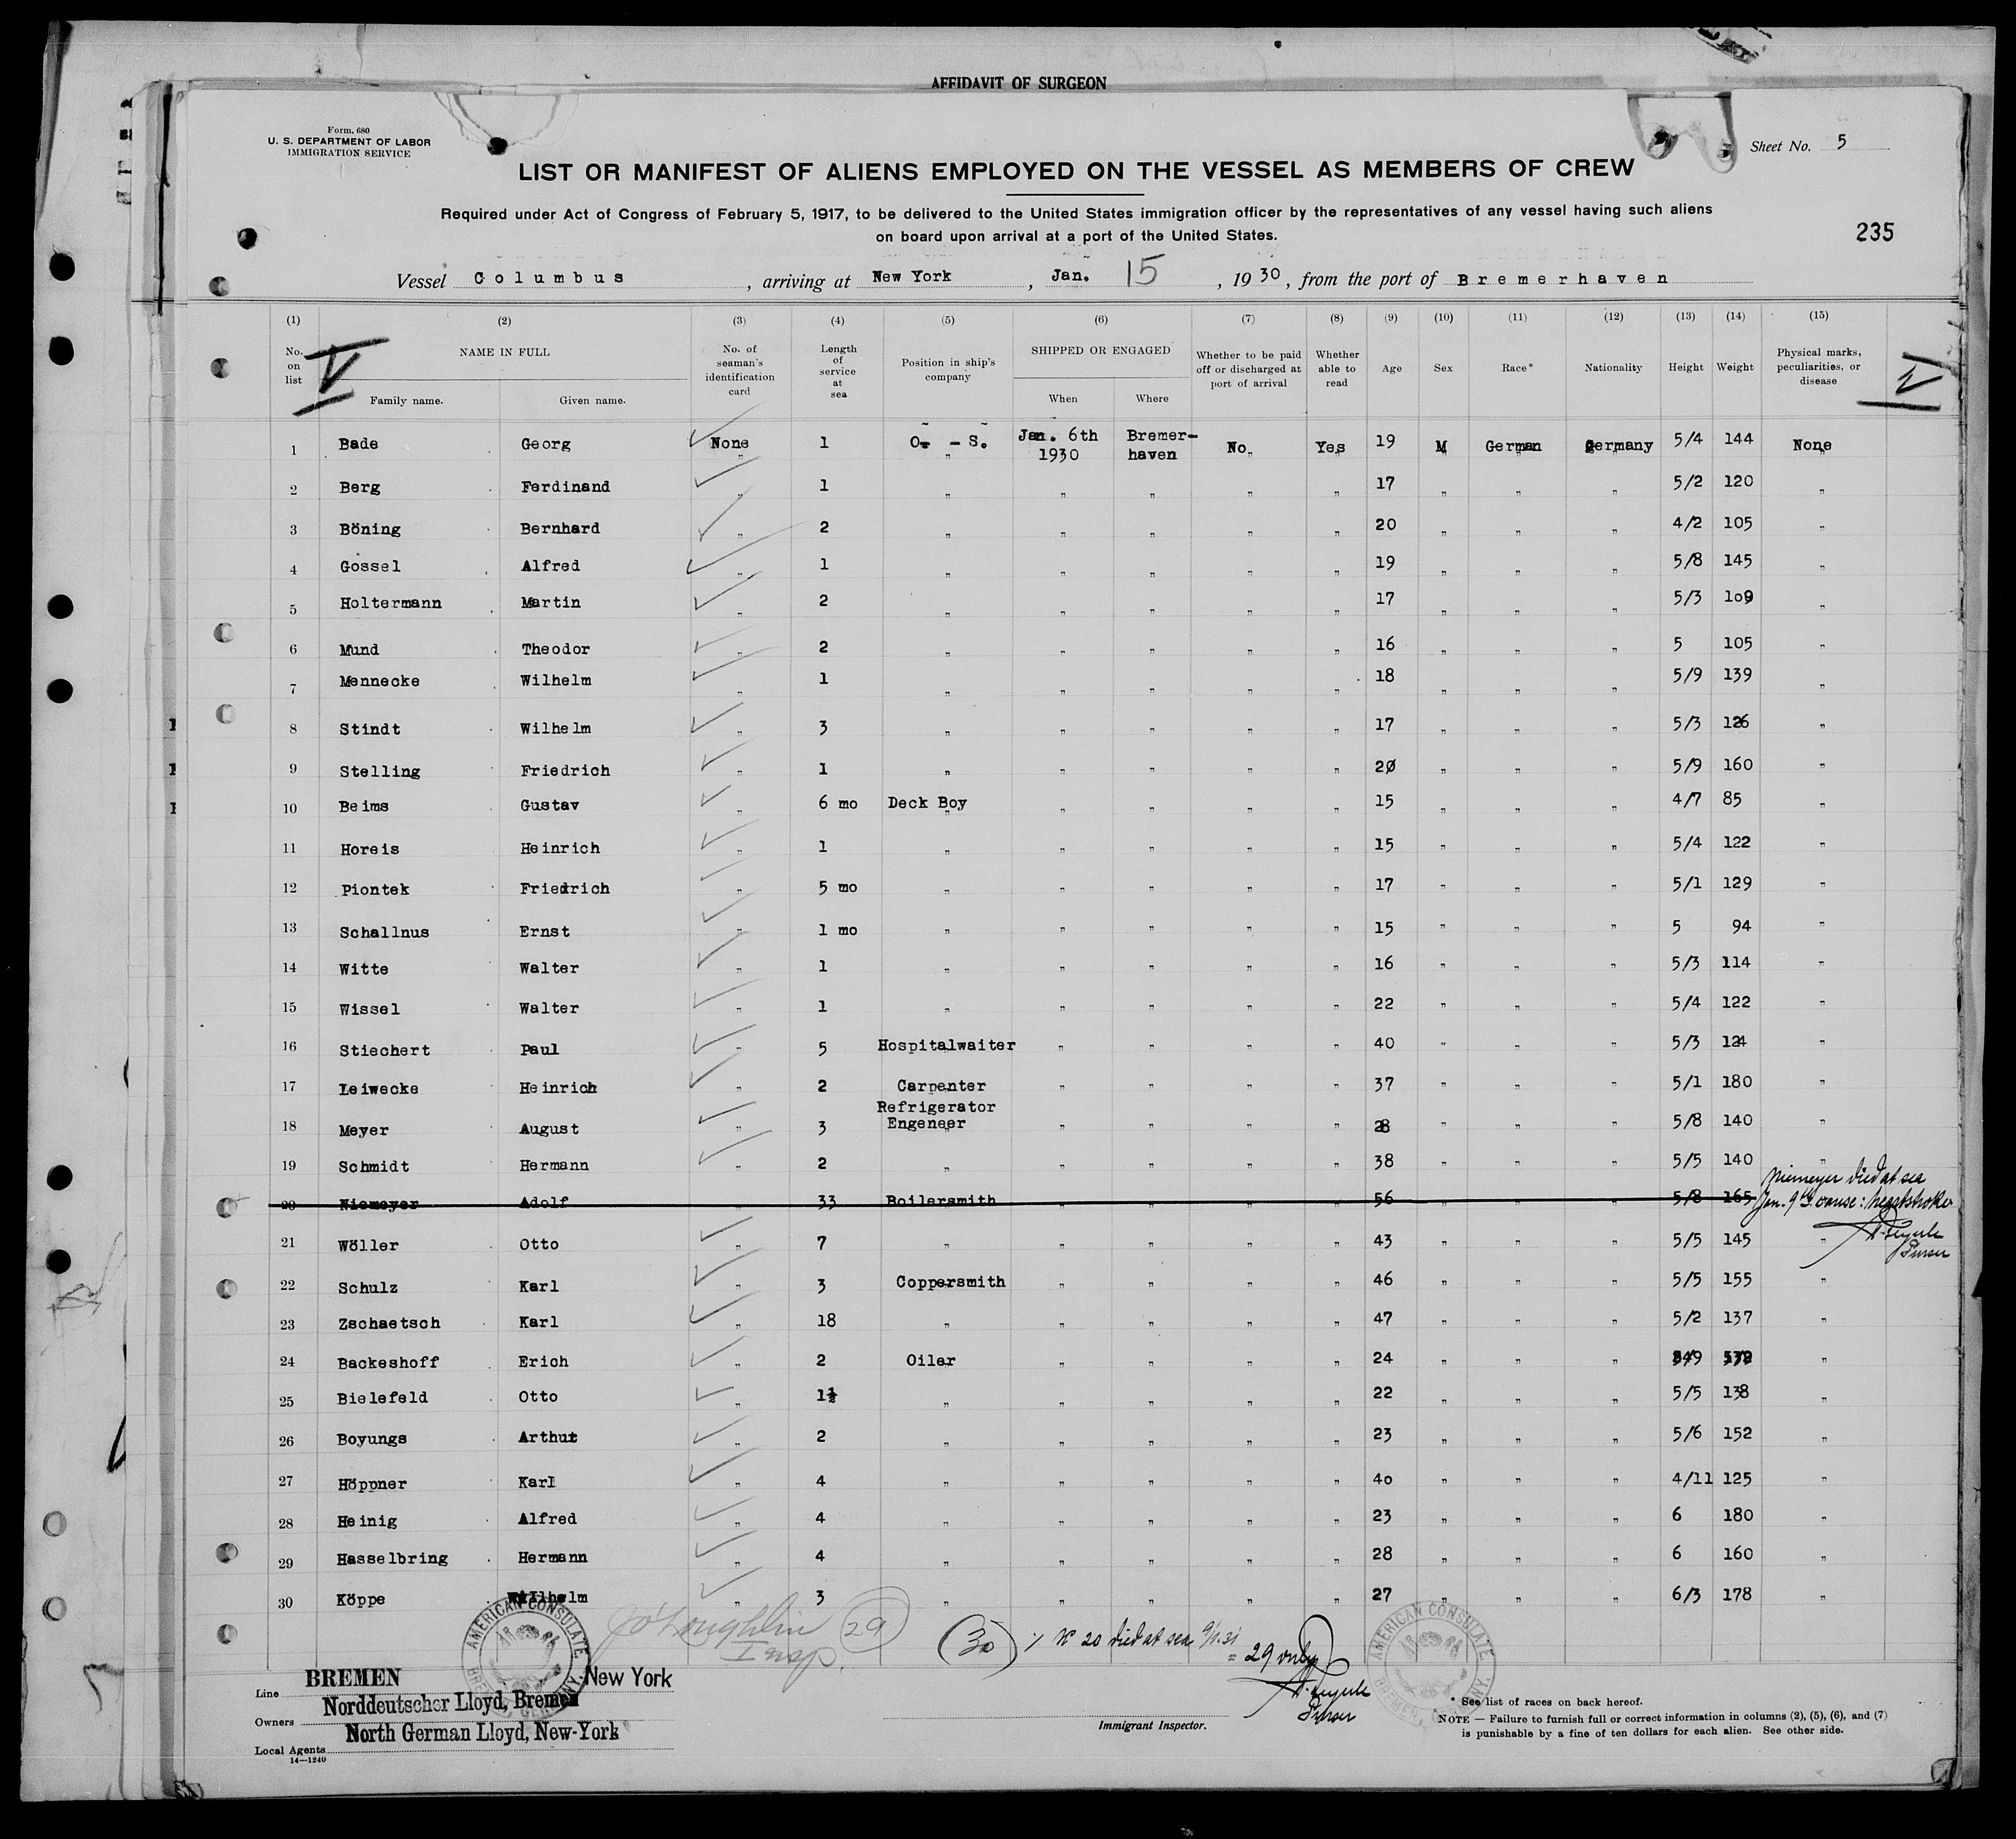 AFFIDAVIT OF SURGEON
Form. 680
U. S. DEPARTMENT OF LABOR
IMMIGRATION SERVICE
Sheet No. 5
LIST OR MANIFEST OF ALIENS EMPLOYED ON THE VESSEL AS MEMBERS OF CREW
Required under Act of Congress of February 5, 1917, to be delivered to the United States immigration officer by the representatives of any vessel having such aliens
on board upon arrival at a port of the United States.
235
Vessel Columbus, arriving at New York, Jan. 15, 1930, from the port of Bremerhaven
(1) (2) (3) (4) (5) (6) (7) (8) (9) (10) (11) (12) (13) (14) (15)
No. on list NAME IN FULL Family name. Given name. No. of seaman's identification card Length of service at sea Position in ship's company SHIPPED OR ENGAGED When Where Whether to be paid off or discharged at port of arrival Whether able to read Age Sex Race* Nationality Height Weight Physical marks, peculiarities, or disease
V V
1 Bade Georg None 1 O. - S. Jan. 6th 1930 Bremer-haven No Yes 19 M German Germany 5/4 144 None
2 Berg Ferdinand " 1 " " " " " 17 " " " 5/2 120 "
3 Böning Bernhard " 2 " " " " " 20 " " " 4/2 105 "
4 Gossel Alfred " 1 " " " " " 19 " " " 5/8 145 "
5 Holtermann Martin " 2 " " " " " 17 " " " 5/3 109 "
6 Mund Theodor " 2 " " " " " 16 " " " 5 105 "
7 Mennecke Wilhelm " 1 " " " " " 18 " " " 5/9 139 "
8 Stindt Wilhelm " 3 " " " " " 17 " " " 5/3 126 "
9 Stelling Friedrich " 1 " " " " " 20 " " " 5/9 160 "
10 Beims Gustav " 6 mo Deck Boy " " " " 15 " " " 4/7 85 "
11 Horeis Heinrich " 1 " " " " " 15 " " " 5/4 122 "
12 Piontek Friedrich " 5 mo " " " " " 17 " " " 5/1 129 "
13 Schallnus Ernst " 1 mo " " " " " 15 " " " 5 94 "
14 Witte Walter " 1 " " " " " 16 " " " 5/3 114 "
15 Wissel Walter " 1 " " " " " 22 " " " 5/4 122 "
16 Stiechert Paul " 5 Hospitalwaiter " " " " 40 " " " 5/3 124 "
17 Leiwecke Heinrich " 2 Carpenter " " " " 37 " " " 5/1 180 "
18 Meyer August " 3 Refrigerator Engeneer " " " " 28 " " " 5/8 140 "
19 Schmidt Hermann 2 " " " " " 38 " " " 5/5 140 "
20 Niemeyer Adolf 33 Boilersmith 56 5/8 165 Niemeyer died at sea
Jan. 9th cause: heartstroke
Purser
21 Wöller Otto " 7 " " " " " 43 " " " 5/5 145 "
22 Schulz Karl " 3 Coppersmith " " " " 46 " " " 5/5 155 "
23 Zschaetsch Karl " 18 " " " " " 47 " " " 5/2 137 "
24 Backeshoff Erich " 2 Oiler " " " " 24 " " " "
25 Bielefeld Otto " 1½ " " " " " 22 " " " 5/5 138 "
26 Boyungs Arthur " 2 " " " " " 23 " " " 5/6 152 "
27 Höppner Karl " 4 " " " " " 40 " " " 4/11 125 "
28 Heinig Alfred " 4 " " " " " 23 " " " 6 180 "
29 Hasselbring Hermann " 4 " " " " " 28 " " " 6 160 "
30 Köppe Wilhelm " 3 " " " " " 27 " " " 6/3 178 "
AMERICAN CONSULATE BREMEN, GERMANY
Insp. 29
(30) № 20 died at sea
= 29 only
Purser
AMERICAN CONSULATE
Line BREMEN New York
Owners Norddeutscher Lloyd, Bremen
Local Agents North German Lloyd, New-York
14—1240
Immigrant Inspector.
* See list of races on back hereof.
NOTE — Failure to furnish full or correct information in columns (2), (5), (6), and (7)
is punishable by a fine of ten dollars for each alien. See other side.